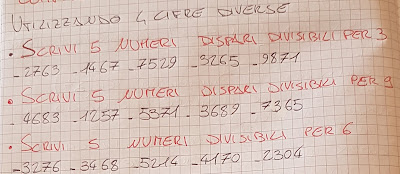 UTILIZZANDO 4 CIFRE DIVERSE
• SCRIVI 5 NUMERI DISPARI DIVISIBILI PER 3
- 2763 - 1467 - 7529 - 3265 - 9871
• SCRIVI 5 NUMERI DISPARI DIVISIBILI PER 9
- 4683 - 1257 - 5371 - 3689 - 7365
• SCRIVI 5 NUMERI DIVISIBILI PER 6
- 3276 - 3468 - 5214 - 4170 - 2304